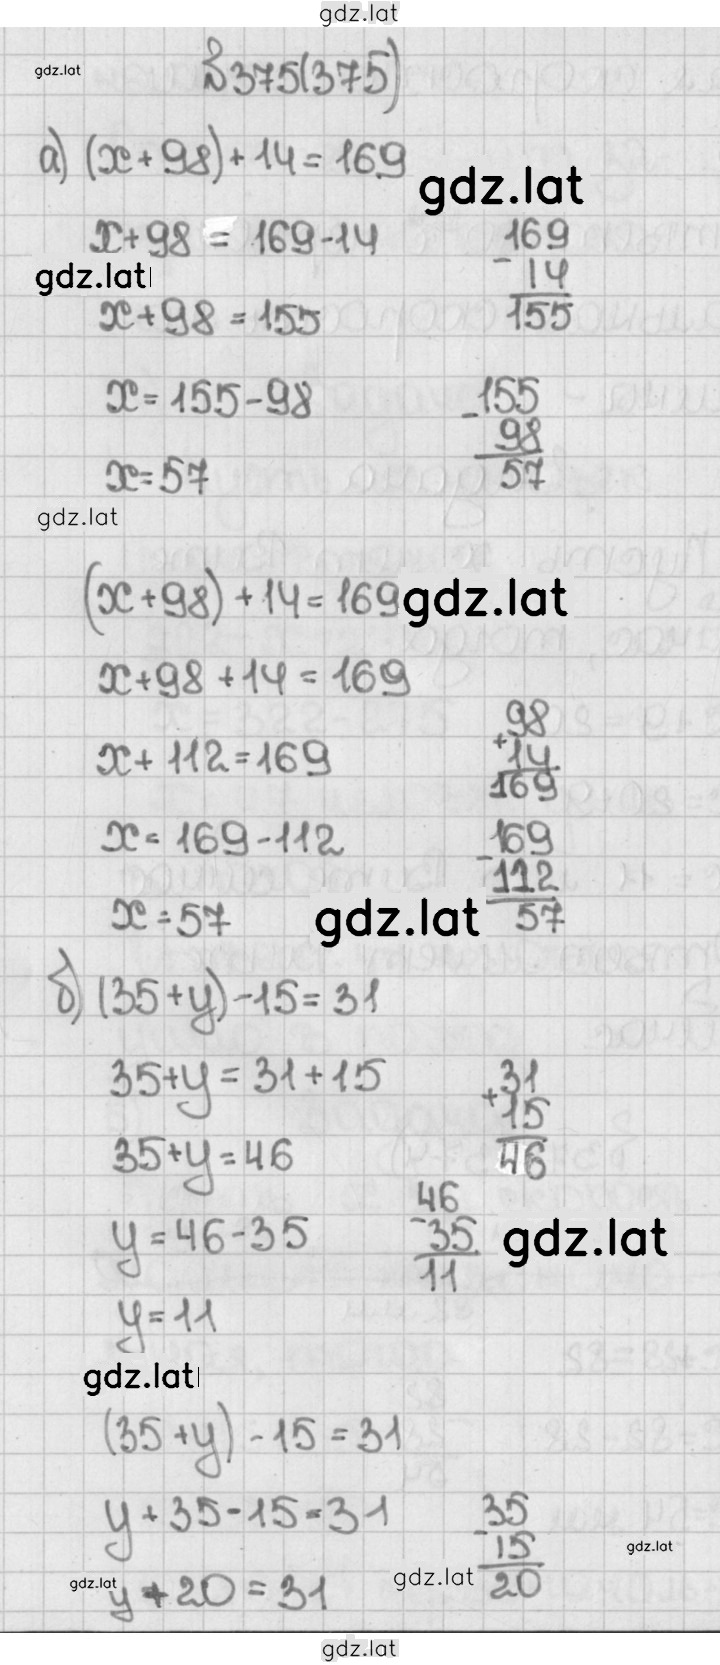 gdz.lat
gdz.lat
№375(375)
а) (x+98)+14=169
gdz.lat
x+98 = 169-14
169
- 14
155
gdz.lat
x+98=155
x=155-98
- 155
98
57
x=57
gdz.lat
(x+98)+14=169
gdz.lat
x+98+14=169
98
+ 14
169
x+112=169
x=169-112
- 169
112
57
x=57
gdz.lat
б) (35+y)-15=31
35+y=31+15
+ 31
15
46
35+y=46
46
- 35
11
y=46-35
gdz.lat
y=11
gdz.lat
(35+y)-15=31
y+35-15=31
35
- 15
20
gdz.lat
gdz.lat
gdz.lat
y+20=31
gdz.lat